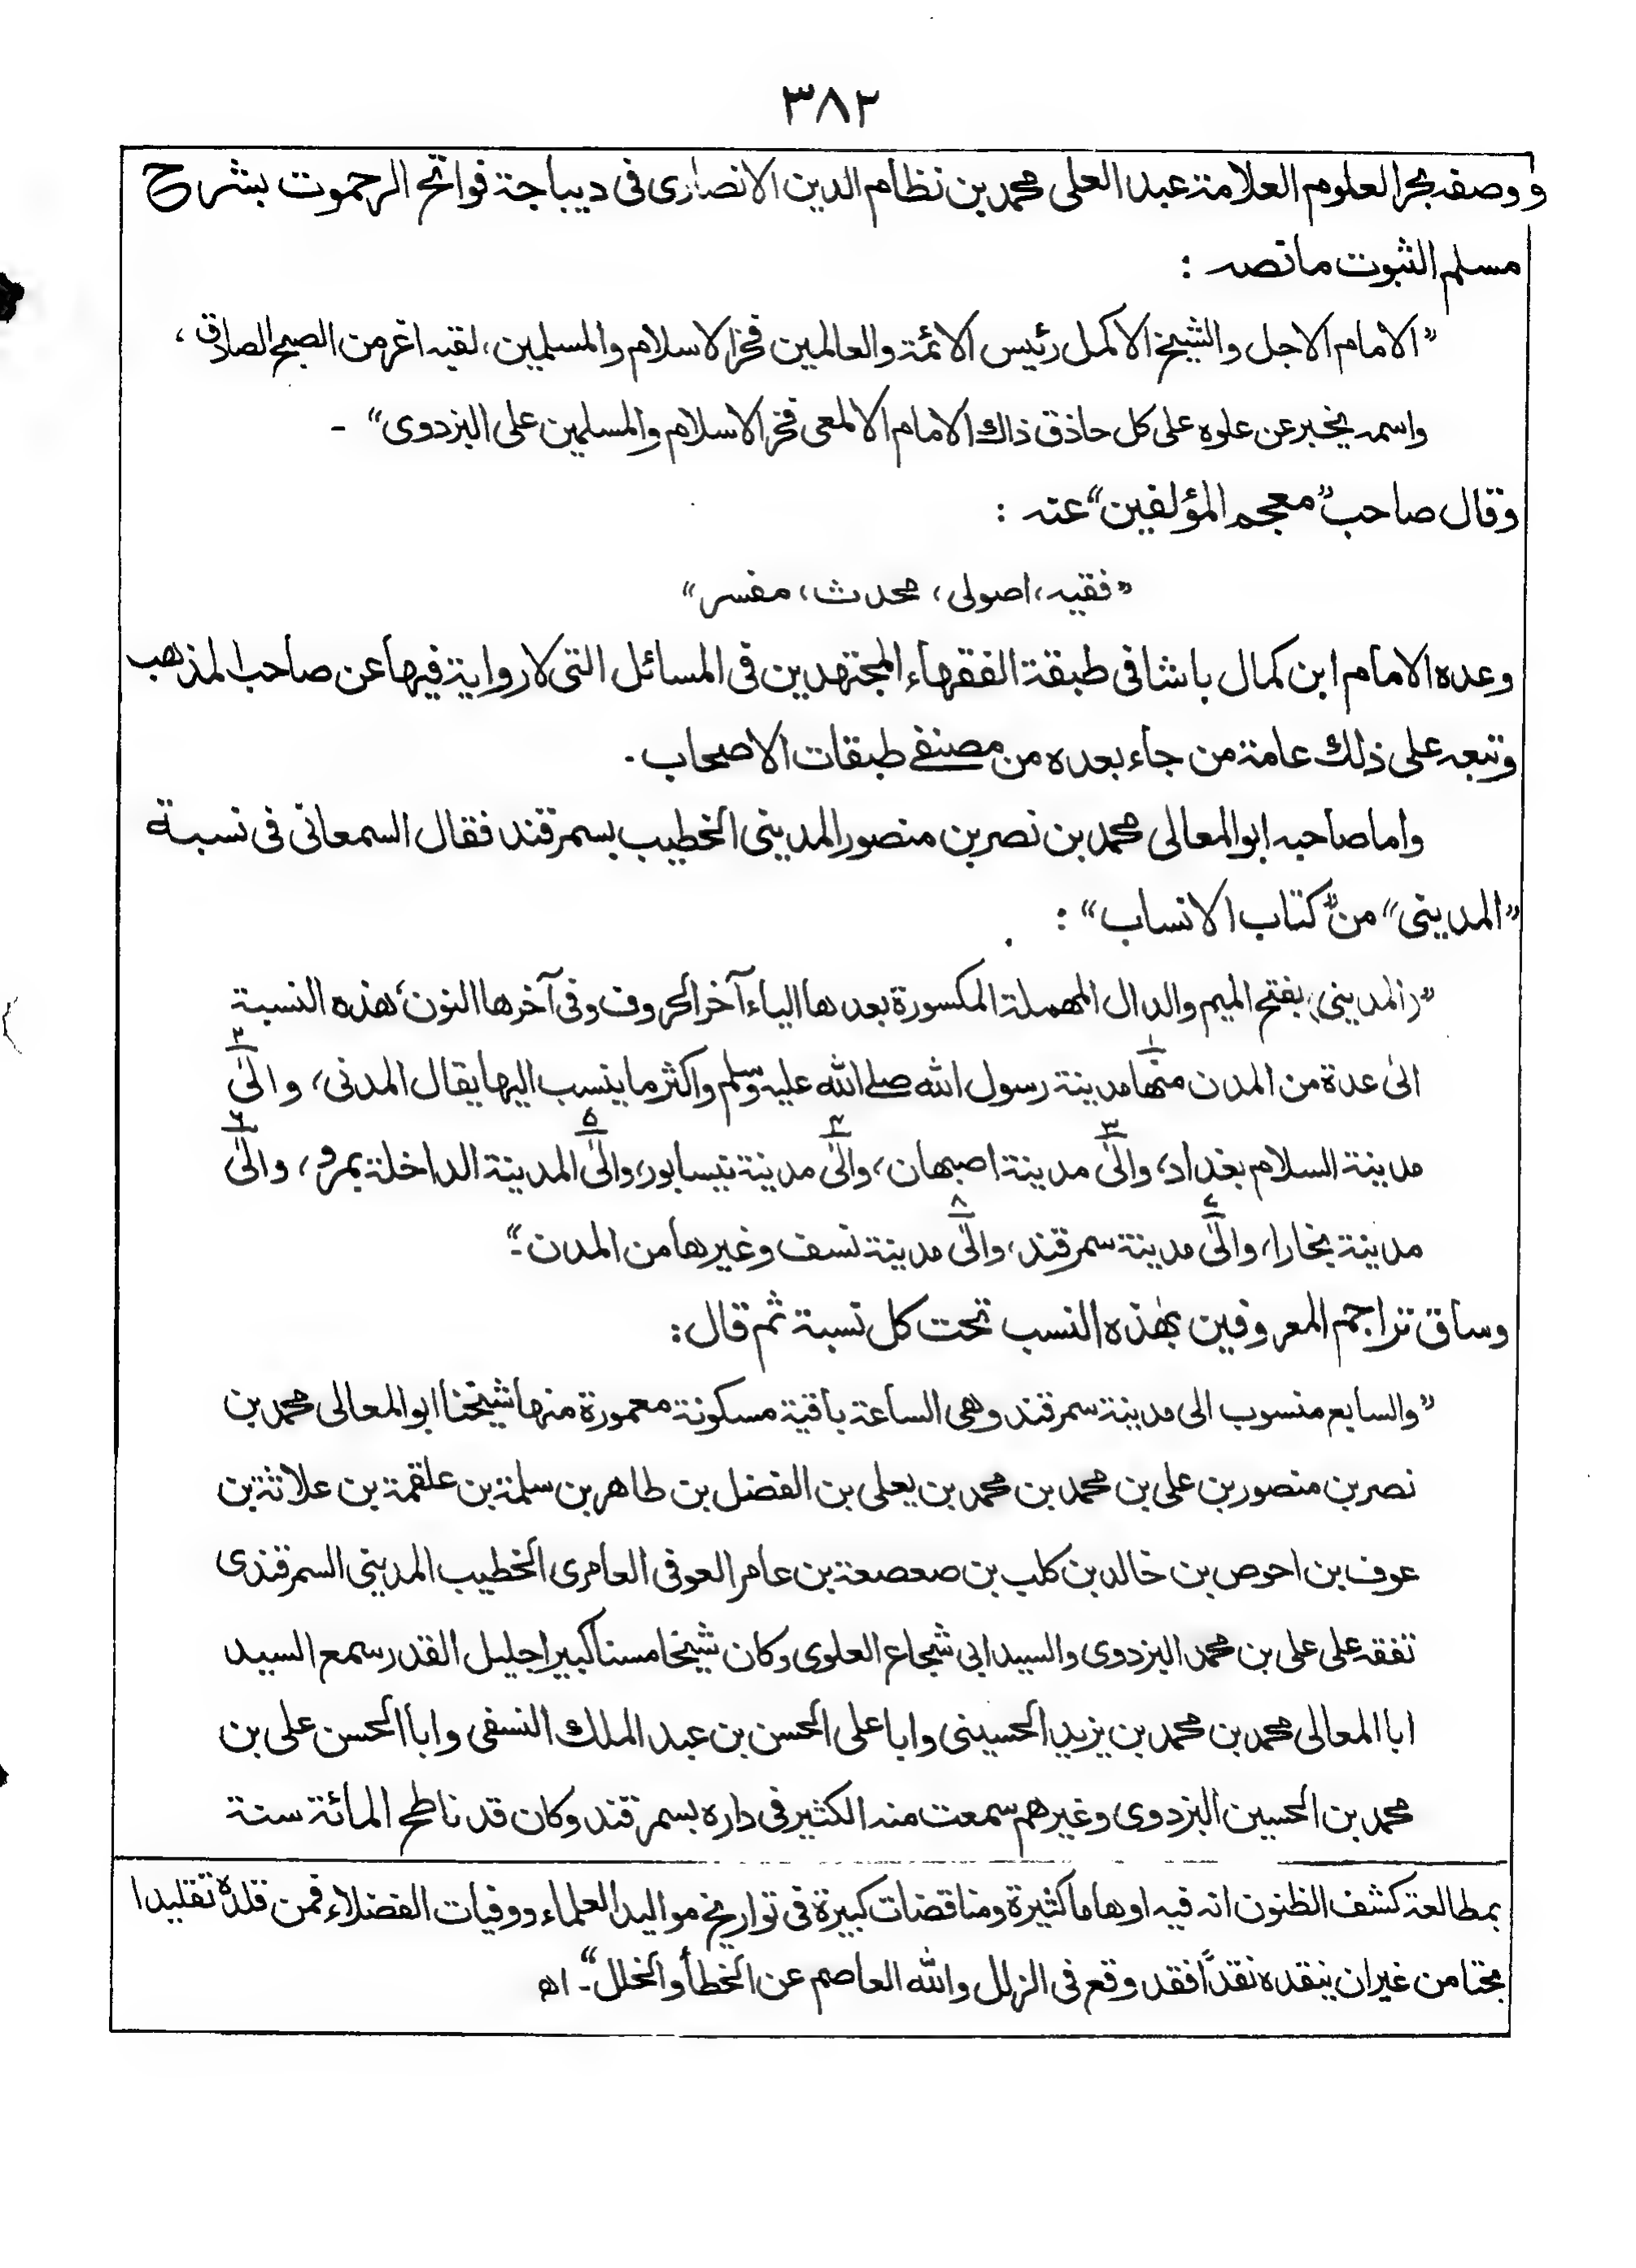 ٣٨٢
ووصفه بحر العلوم العلامة عبد العلى محمد بن نظام الدين الانصارى فى ديباجة فواتح الرحموت بشرح
مسلم الثبوت مانصه :
”الامام الاجل والشيخ الاكمل رئيس الائمة والعالمين فخر الاسلام والمسلمين، لقبه اغر من الصبح الصادق،
واسمه يخبر عن علوه على كل حاذق ذاك الامام الالمعى فخر الاسلام والمسلمين على البزدوى“ -
وقال صاحب ”معجم المؤلفين“ عنه :
”فقيه، اصولى، محدث، مفسر“
وعده الامام ابن كمال باشا فى طبقة الفقهاء المجتهدين فى المسائل التى لا رواية فيها عن صاحب المذهب
وتبعه على ذلك عامة من جاء بعده من مصنفے طبقات الاصحاب.
واما صاحبه ابو المعالى محمد بن نصر بن منصور المدينى الخطيب بسمرقند فقال السمعانى فى نسبة
”المدينى“ من ”كتاب الانساب“ :
”(المدينى) بفتح الميم والدال المهملة المكسورة بعدها الياء آخر الحروف وفى آخرها النون، هذه النسبة
الى عدة من المدن منها١ مدينة رسول الله صلے الله عليه وسلم واكثر ما ينسب اليها يقال المدنى، والى٢
مدينة السلام بغداد، والى٣ مدينة اصبهان، والى٤ مدينة نيسابور، والى٥ المدينة الداخلة بمرو، والى٦
مدينة بخارا، والى٧ مدينة سمرقند، والى٨ مدينة نسف وغيرها من المدن“۔
وساق تراجم المعروفين بهذه النسب تحت كل نسبة ثم قال:
”والسابع منسوب الى مدينة سمرقند وهى الساعة باقية مسكونة معمورة منها شيخنا ابو المعالى محمد بن
نصر بن منصور بن على بن محمد بن محمد بن يعلى بن الفضل بن طاهر بن سلمة بن علقمة بن علاثة بن
عوف بن احوص بن خالد بن كلب بن صعصعة بن عامر العوفى العامرى الخطيب المدينى السمرقندى
تفقه على على بن محمد البزدوى والسيد ابى شجاع العلوى وكان شيخا مسنا كبيرا جليل القدر سمع السيد
ابا المعالى محمد بن محمد بن يزيد الحسينى وابا على الحسن بن عبد الملك النسفى وابا الحسن على بن
محمد بن الحسين البزدوى وغيرهم سمعت منه الكثير فى داره بسمرقند وكان قد ناطح المائة سنة
بمطالعة كشف الظنون انه فيه اوهاما كثيرة ومناقضات كبيرة فى تواريخ مواليد العلماء ووفيات الفضلاء فمن قلده تقليدا
بحتا من غير ان ينقده نقداً فقد وقع فى الزلل والله العاصم عن الخطأ والخلل“۔ اھ